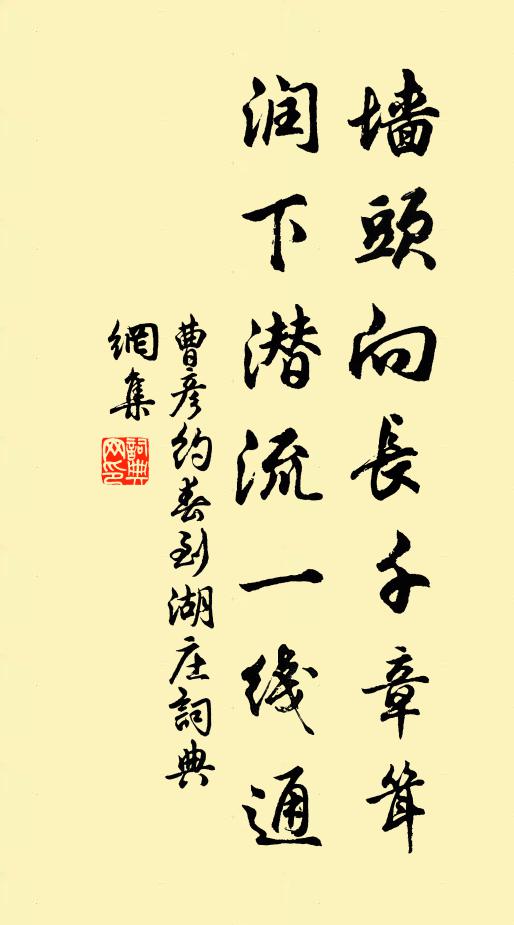 墙頭向長千章耸
润下潜流一线通
曹彦约春到湖庄詞典
網集
詞典網印